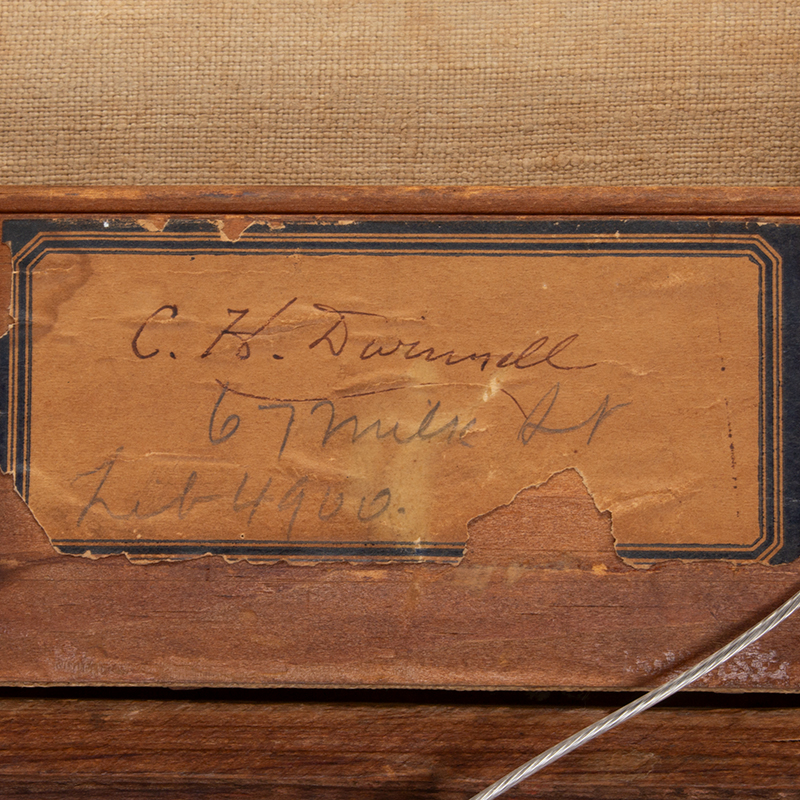 C. H. Dwinnell
67 Milk St
Feb 4 900.